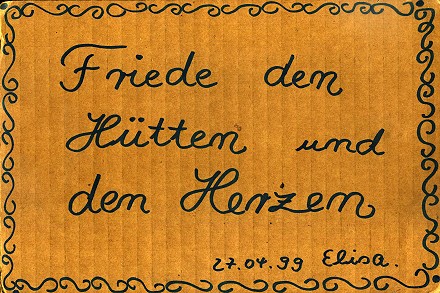 Friede den
Hütten und
den Herzen
27.04.99 Elisa.